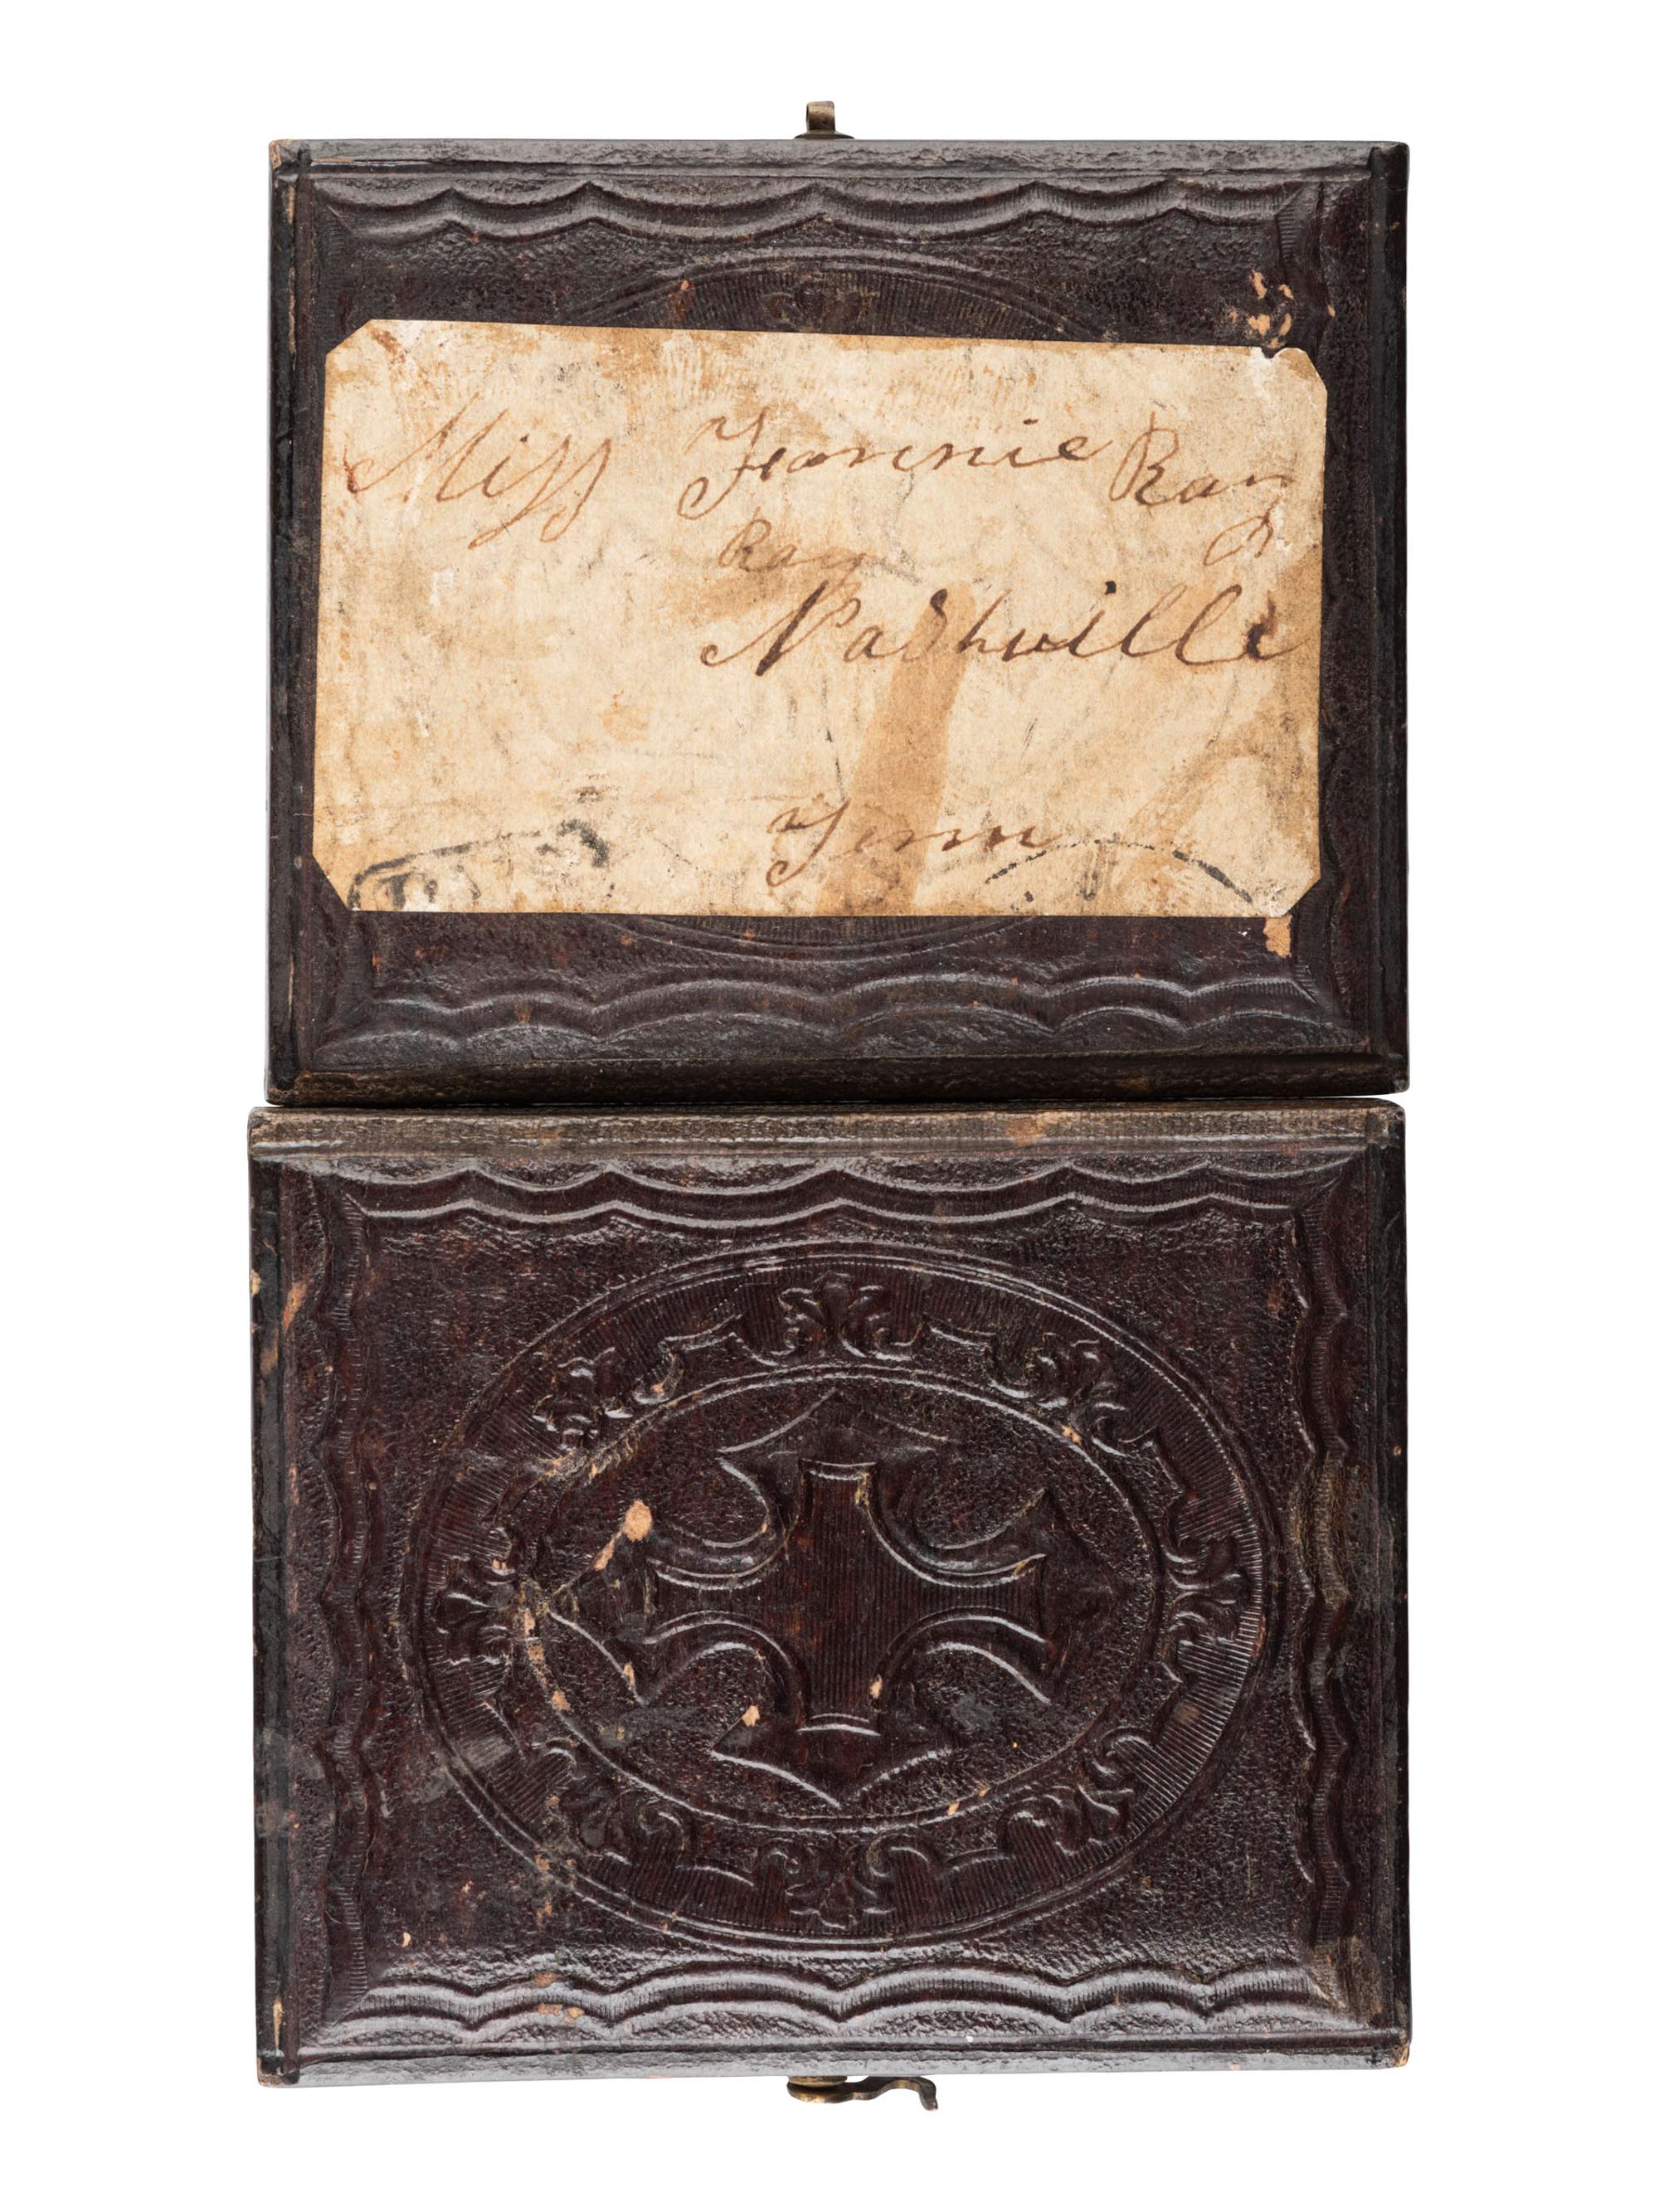 Miss Jeannie Ray
Ray R
Nashville
Tenn